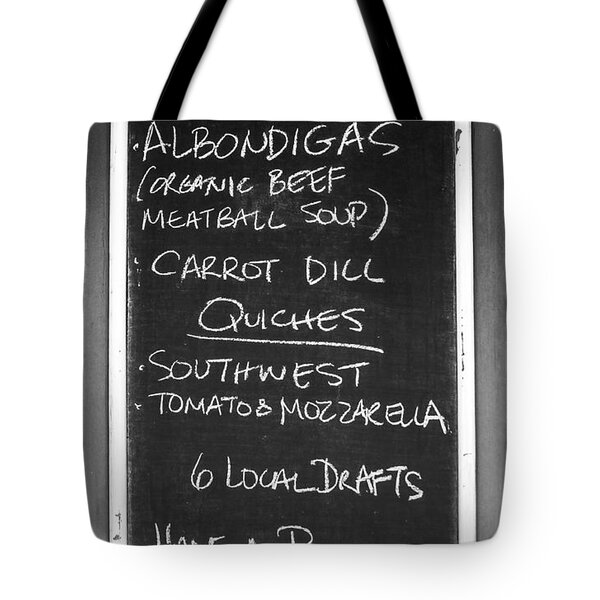 · ALBONDIGAS
(ORGANIC BEEF
MEATBALL SOUP)
· CARROT DILL
QUICHES
· SOUTHWEST
· TOMATO & MOZZARELLA
6 LOCAL DRAFTS